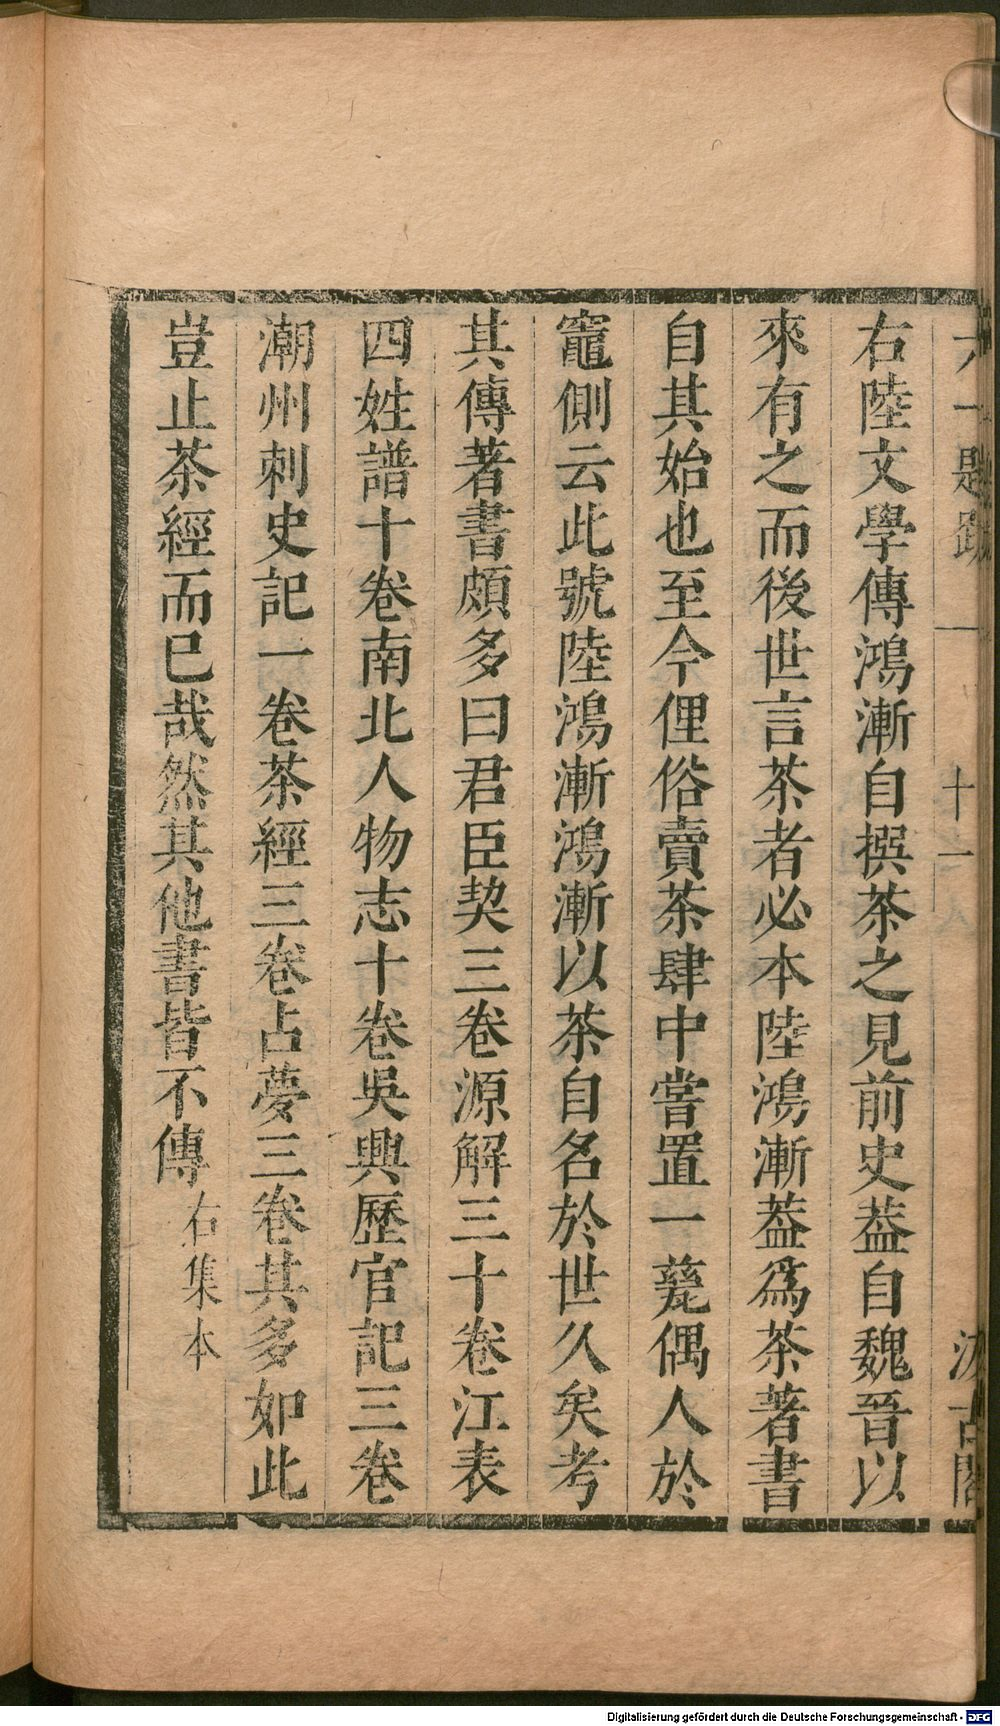 六一題跋 一 十一 汲古閣
右陸文學傳鴻漸自撰茶之見前史葢自魏晉以
來有之而後世言茶者必本陸鴻漸葢爲茶著書
自其始也至今俚俗賣茶肆中嘗置一甆偶人於
竈側云此號陸鴻漸鴻漸以茶自名於世久矣考
其傳著書頗多曰君臣契三卷源解三十卷江表
四姓譜十卷南北人物志十卷吳興歷官記三卷
潮州刺史記一卷茶經三卷占夢三卷其多如此
豈止茶經而已哉然其他書皆不傳 右集本
Digitalisierung gefördert durch die Deutsche Forschungsgemeinschaft - DFG